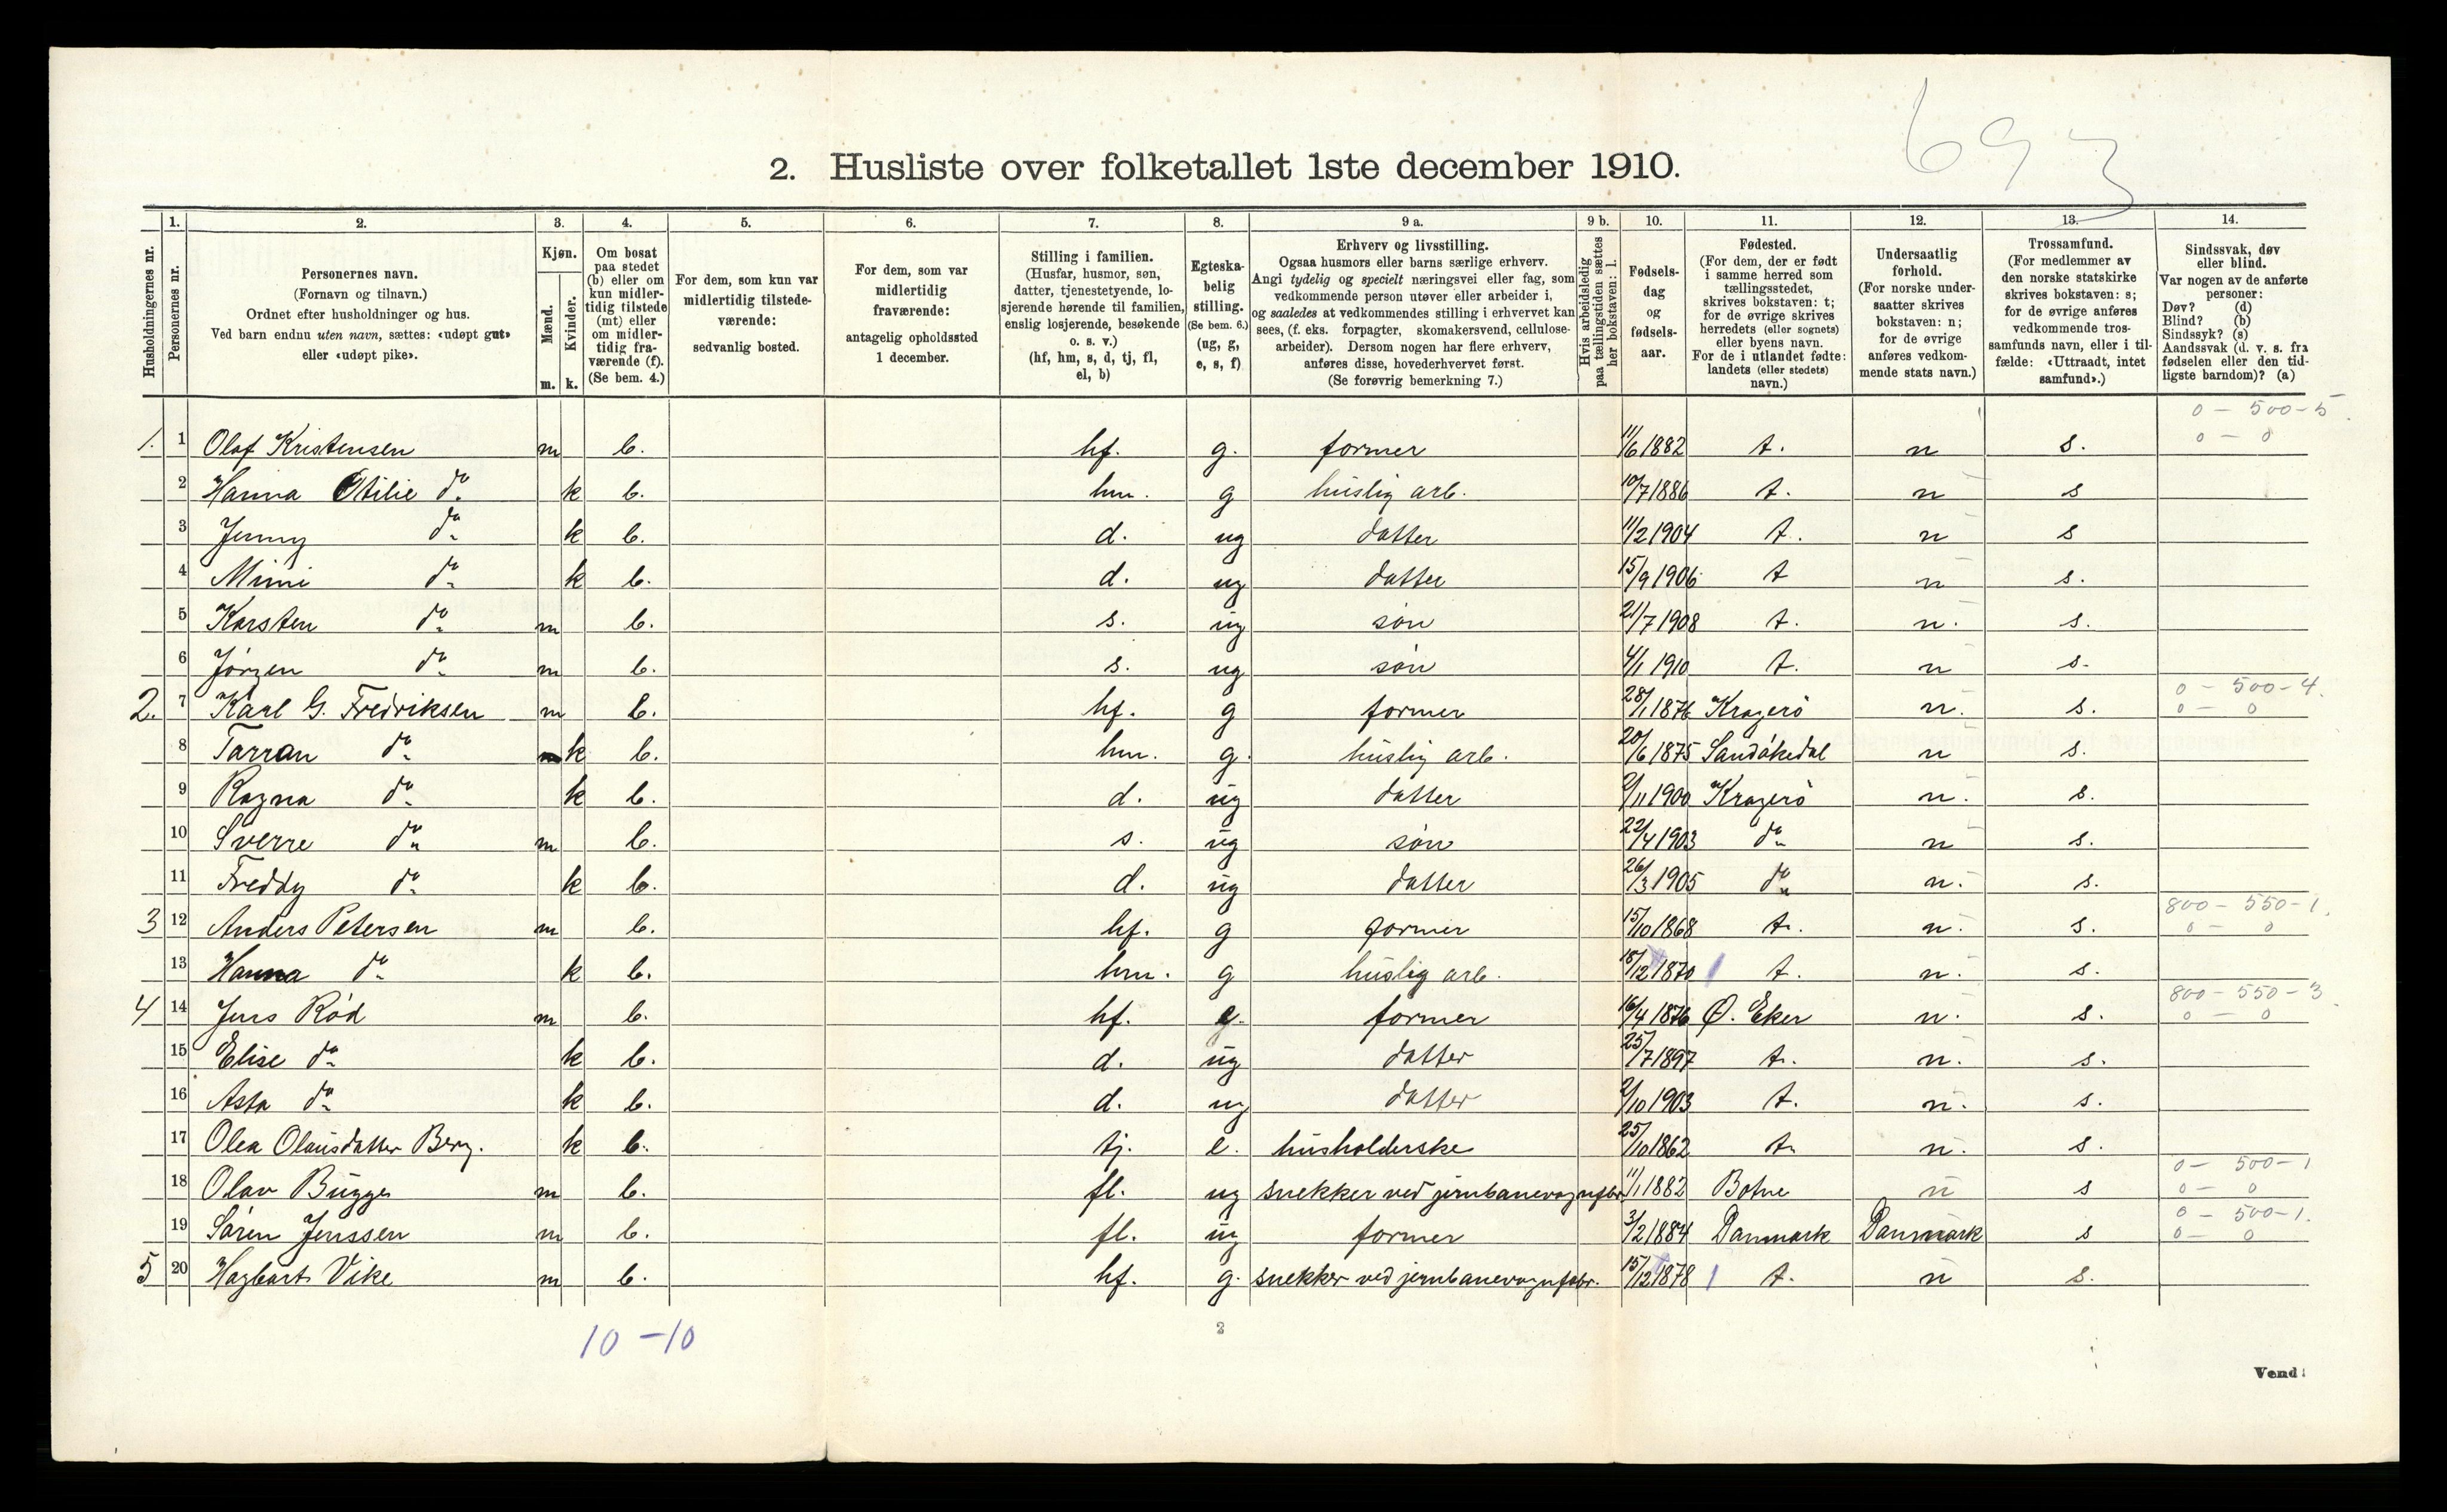 693
2. Husliste over folketallet 1ste december 1910.
Husholdningernes nr.
1.
Personernes nr.
2.
Personernes navn.
(Fornavn og tilnavn.)
Ordnet efter husholdninger og hus.
Ved barn endnu uten navn, sættes: «udøpt gut»
eller «udøpt pike».
3.
Kjøn.
Mænd.
Kvinder.
m. k.
4.
Om bosat
paa stedet
(b) eller om
kun midler-
tidig tilstede
(mt) eller
om midler-
tidig fra-
værende (f).
(Se bem. 4.)
5.
For dem, som kun var
midlertidig tilstede-
værende:
sedvanlig bosted.
6.
For dem, som var
midlertidig
fraværende:
antagelig opholdssted
1 december.
7.
Stilling i familien.
(Husfar, husmor, søn,
datter, tjenestetyende, lo-
sjerende hørende til familien,
enslig losjerende, besøkende
o. s. v.)
(hf, hm, s, d, tj, fl,
el, b)
8.
Egteska-
belig
stilling.
(Se bem. 6.)
(ug, g,
e, s, f)
9 a.
Erhverv og livsstilling.
Ogsaa husmors eller barns særlige erhverv.
Angi tydelig og specielt næringsvei eller fag, som
vedkommende person utøver eller arbeider i,
og saaledes at vedkommendes stilling i erhvervet kan
sees, (f. eks. forpagter, skomakersvend, cellulose-
arbeider). Dersom nogen har flere erhverv,
anføres disse, hovederhvervet først.
(Se forøvrig bemerkning 7.)
9 b.
Hvis arbeidsledig
paa tællingstiden sættes
her bokstaven: l.
10.
Fødsels-
dag
og
fødsels-
aar.
11.
Fødested.
(For dem, der er født
i samme herred som
tællingsstedet,
skrives bokstaven: t;
for de øvrige skrives
herredets (eller sognets)
eller byens navn.
For de i utlandet fødte:
landets (eller stedets)
navn.)
12.
Undersaatlig
forhold.
(For norske under-
saatter skrives
bokstaven: n;
for de øvrige
anføres vedkom-
mende stats navn.)
13.
Trossamfund.
(For medlemmer av
den norske statskirke
skrives bokstaven: s;
for de øvrige anføres
vedkommende tros-
samfunds navn, eller i til-
fælde: «Uttraadt, intet
samfund».)
14.
Sindssvak, døv
eller blind.
Var nogen av de anførte
personer:
Døv? (d)
Blind? (b)
Sindssyk? (s)
Aandssvak (d. v. s. fra
fødselen eller den tid-
ligste barndom)? (a)
0 - 500-5.
1. 1 Olaf Kristensen m b. hf. g. former 11/6 1882 t. n s. 0 - 0
2 Hanna Otilie do k b. hm. g huslig arb. 10/7 1886 t. n s
3 Jenny do k b. d. ug datter 11/2 1904 t. n s
4 Mimi do k b. d. ug datter 15/9 1906 t n s.
5 Karsten do m b. s. ug søn 21/7 1908 t. n. s.
6 Jørgen do m b. s. ug søn 4/1 1910 t. n s.
0 - 500-4.
2. 7 Karl G. Fredriksen m b. hf. g former 28/1 1876 Kragerø n. s. 0 - 0
8 Tarran do k b. hm. g. huslig arb. 20/6 1875 Sandøkedal n s.
9 Ragna do k b. d. ug datter /11 1900 Kragerø n. s.
10 Sverre do m b. s. ug søn 22/4 1903 do n s.
11 Freddy do k b. d. ug datter 26/3 1905 do n. s.
800 - 550-1.
3 12 Anders Petersen m b. hf. g former 15/10 1868 t. n. s. 0 - 0
13 Hanna do k b. hm. g huslig arb. 18/12 1870 t. n. s.
800 - 550-3.
4 14 Jens Rød m b. hf. e. former 16/4 1876 Ø. Eker n. s. 0 - 0
15 Elise do k b. d. ug datter 25/7 1897 t. n. s.
16 Asta do k b. d. ug datter 2/10 1903 t. n. s.
17 Olea Olausdatter Berg. k b. tj. e. husholderske 25/10 1862 t. n. s.
0 - 500-1
18 Olav Bugge m b. fl. ug snekker ved jernbanevognfbr. 11/1 1882 Botne n s 0 - 0
0 - 500-1.
19 Søren Jenssen m b. fl. ug former 3/2 1884 Danmark Danmark s 0 - 0
5 20 Hagbart Vike m b. hf. g. snekker ved jernbanevognfabr. 15/12 1878 t. n s.
10 - 10
2
Vend!